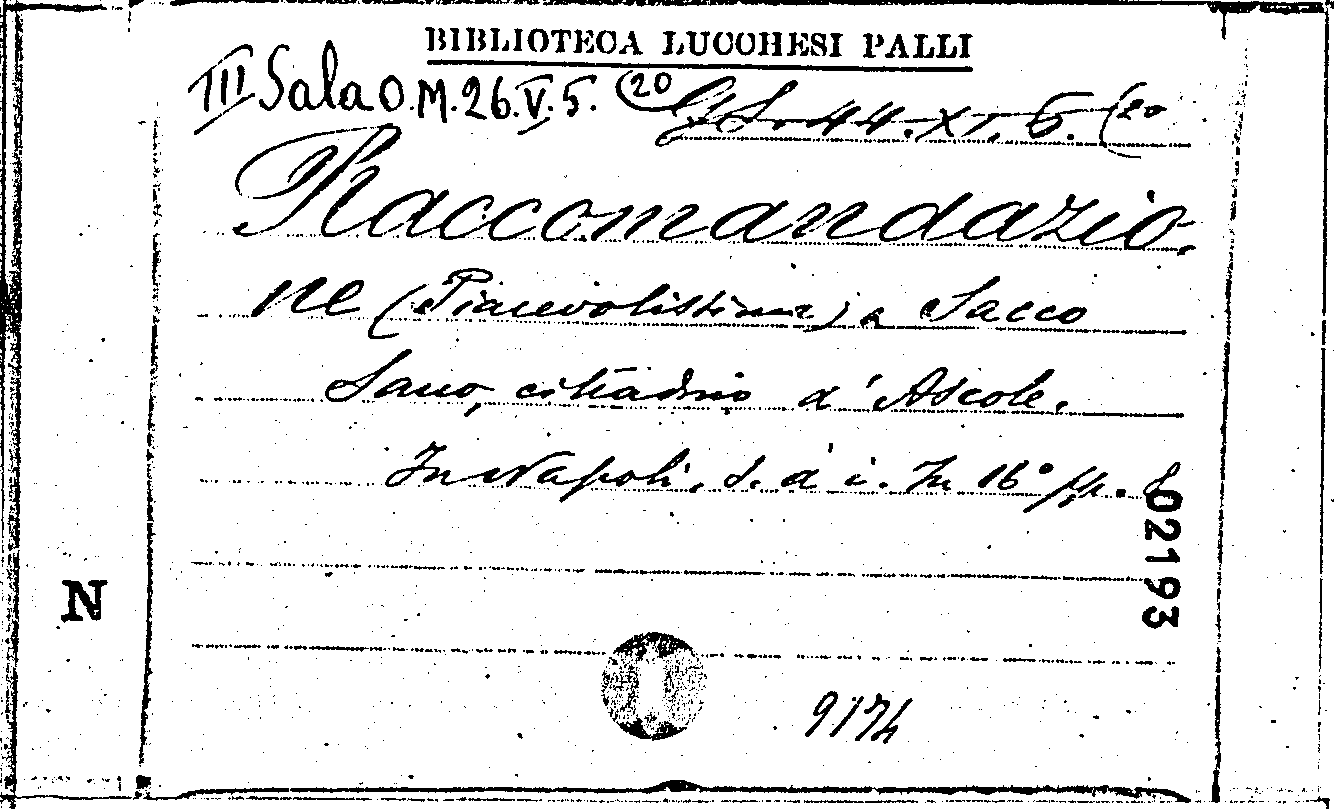 BIBLIOTECA LUCCHESI PALLI
III Sala O.M.26.V.5. (20
44.XI.6. (20
Raccomandazio-
ne (Piacevolissima) a Sacco
Sano, cittadino d'Ascole.
In Napoli. S. d' i. In 16° pp. 8
02193
N
9174